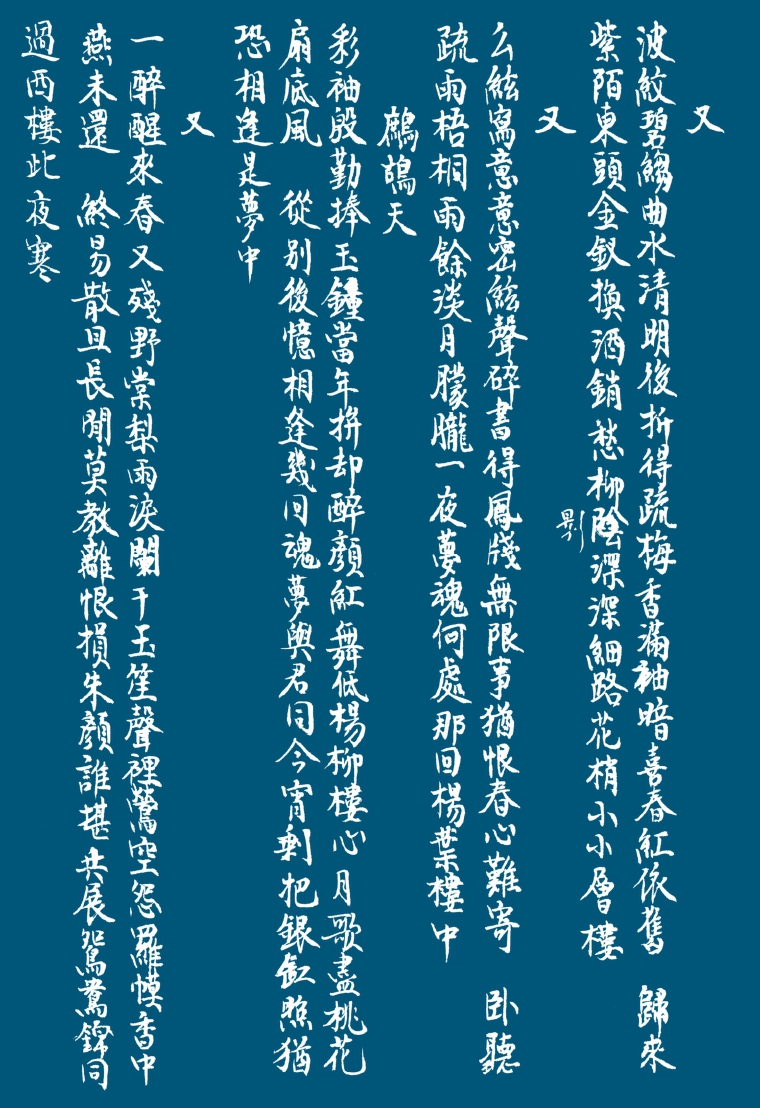 又
波紋碧縐曲水清明後折得疏梅香滿袖暗喜春紅依舊　歸來
紫陌東頭金釵換酒銷愁柳陰深深細路花梢小小層樓
別
又
么絃寫意意密絃聲碎書得鳳牋無限事猶恨春心難寄　卧聽
疏雨梧桐雨餘淡月朦朧一夜夢魂何處那回楊葉樓中
鷓鴣天
彩袖殷勤捧玉鍾當年拚却醉顏紅舞低楊柳樓心月歌盡桃花
扇底風　從別後憶相逢幾回魂夢與君同今宵剩把銀釭照猶
恐相逢是夢中
又
一醉醒來春又殘野棠梨雨淚闌干玉笙聲裡鸞空怨羅幙香中
燕未還　終易散且長閒莫教離恨損朱顏誰堪共展鴛鴦錦同
過西樓此夜寒